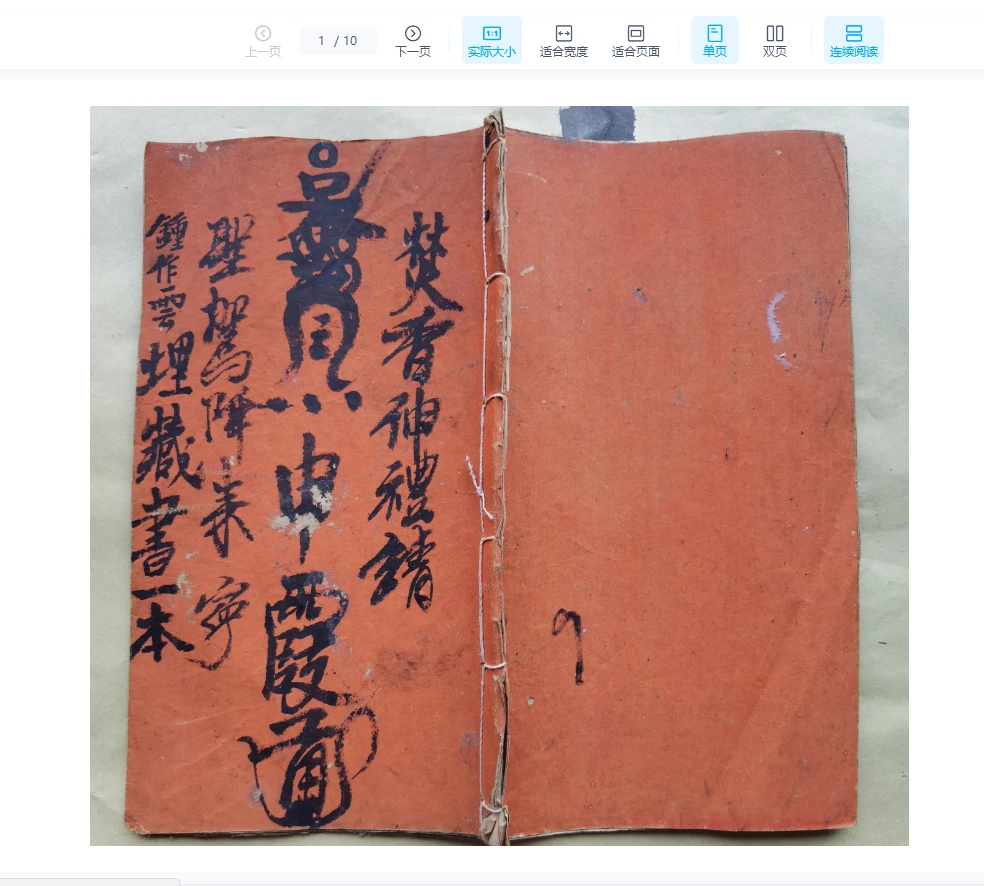 上一页
1 / 10
下一页
实际大小
适合宽度
适合页面
单页
双页
连续阅读
焚香神禮請
聖駕降來寧
鍾作雲埋藏書一本